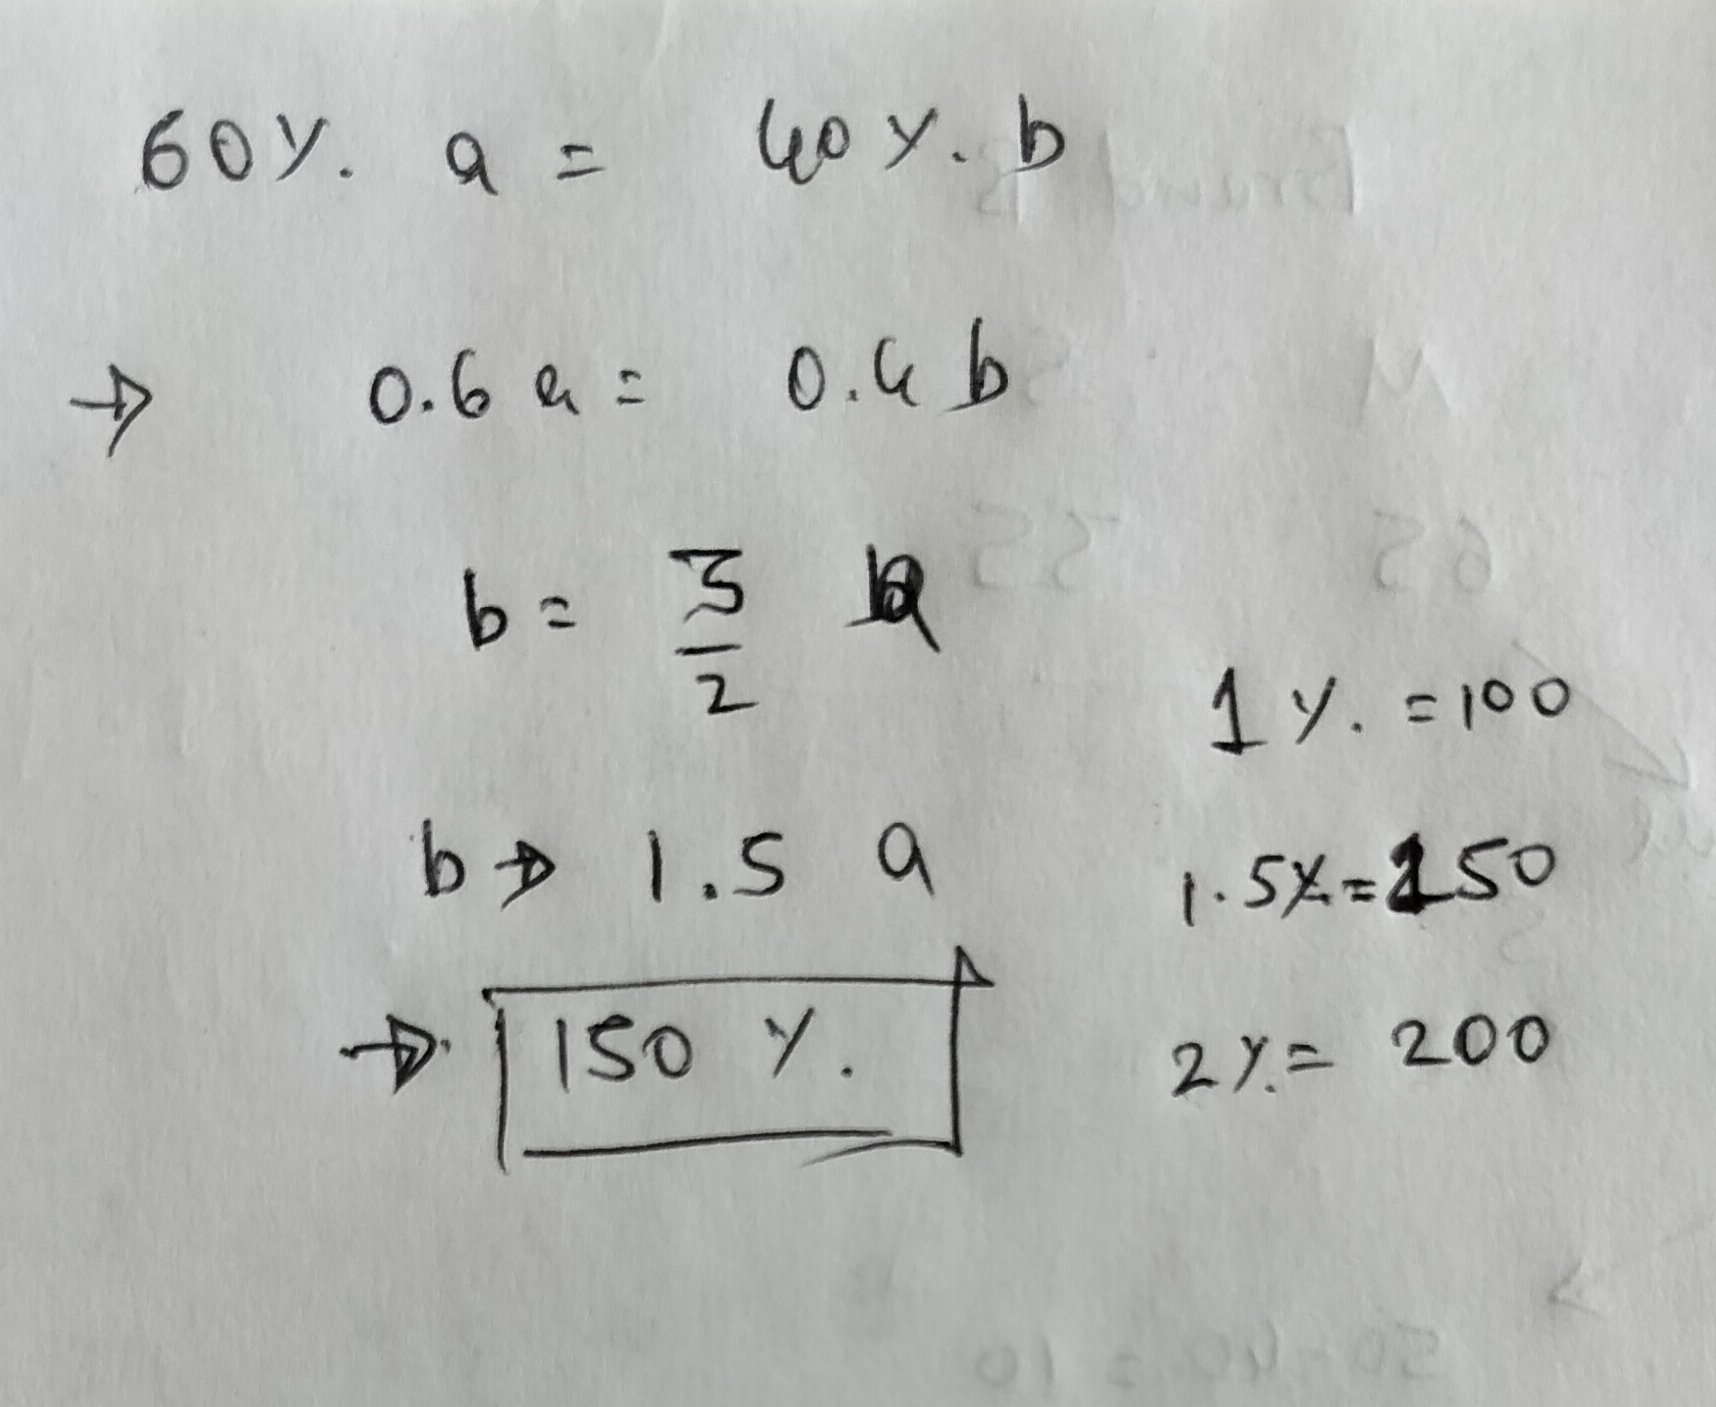 60%. a = 40%. b
→ 0.6 a = 0.4 b
b = 3/2 a
b → 1.5 a
→ 150 %.
1 %. = 100
1.5%. = 150
2%. = 200